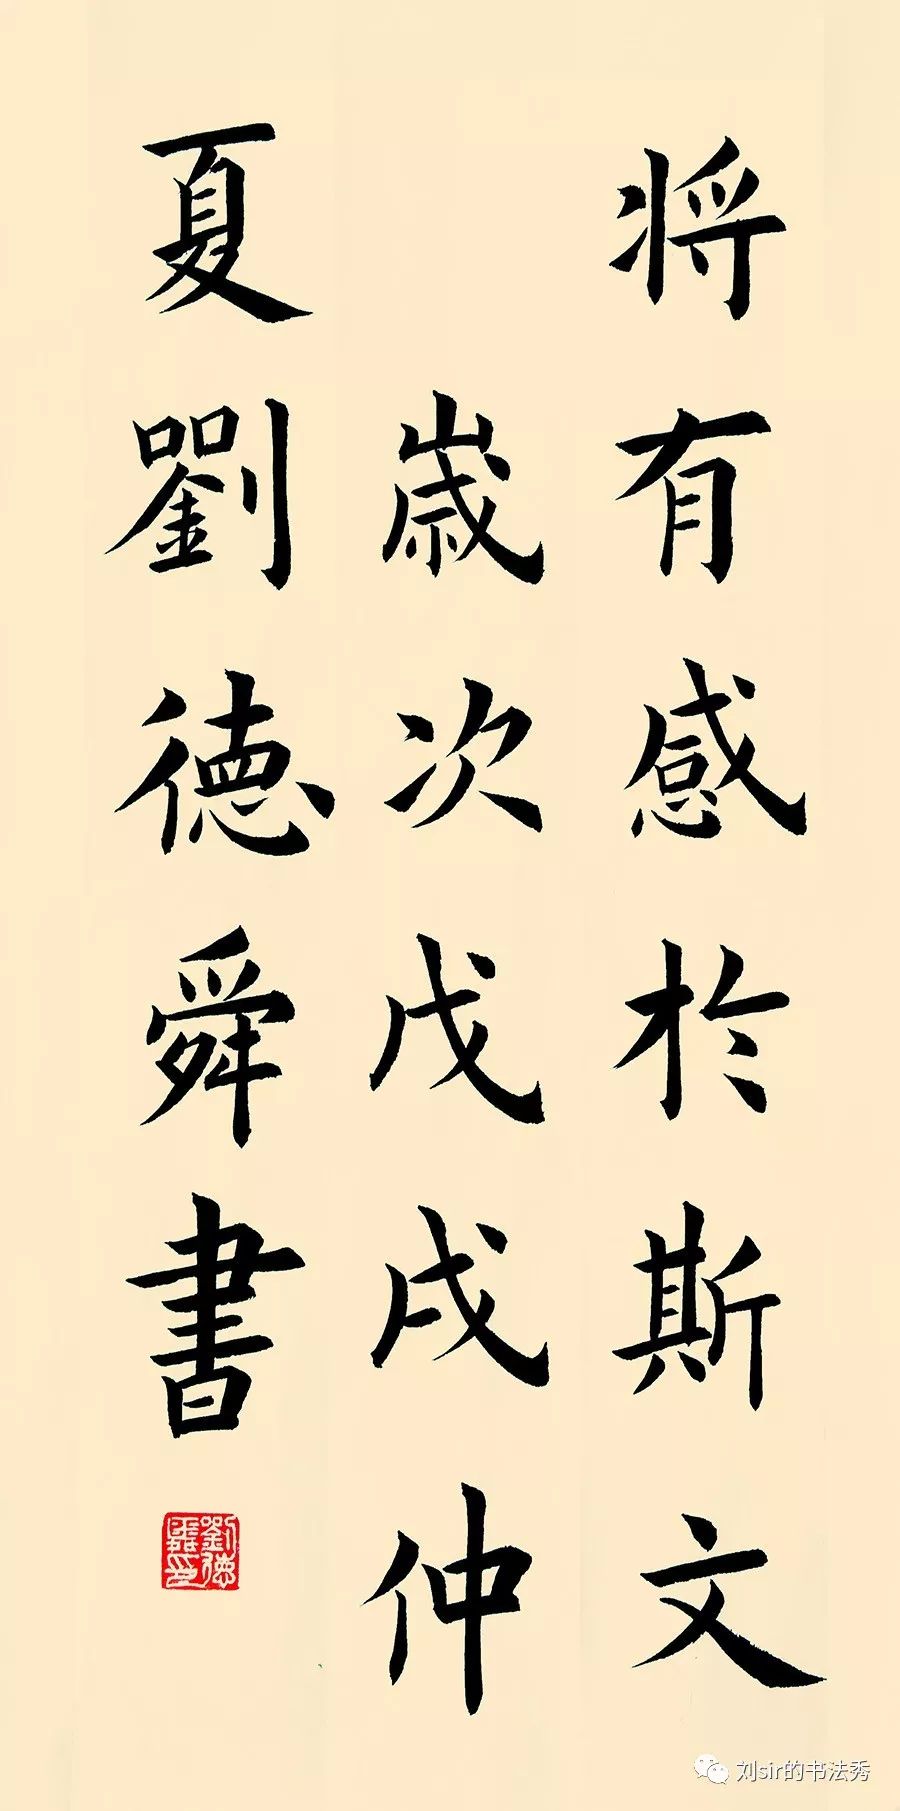 将有感於斯文
歳次戊戌仲
夏劉德舜書
劉德舜印
刘sir的书法秀